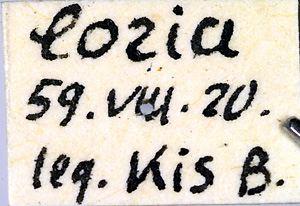 Cozia
59.VIII.20.
leg. Kis B.